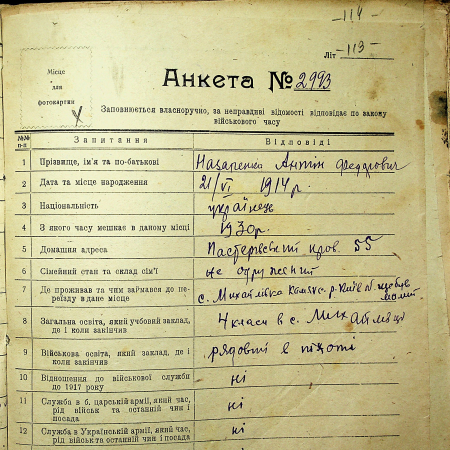 - 114 -
Літ - 113 -
Місце
для
фотокартки
Анкета № 2993
Заповнюється власноручно, за неправдиві відомості відповідає по закону
військового часу
№№
п-п
Запитання
Відповіді
1 Прізвище, ім'я та по-батькові Назаренко Антін Федорович
2 Дата та місце народження 21/VI 1914 р.
3 Національність українець
4 З якого часу мешкає в даному місці 1930 р.
5 Домашня адреса пров. 55
6 Сімейний стан та склад сім'ї не одружений
7 Де проживав та чим займався до пе-
реїзду в дане місце с. Михайлівка р. Київ
8 Загальна освіта, який учбовий заклад,
де і коли закінчив 4 класи в с. Михайлівці
9 Військова освіта, який заклад, де і
коли закінчив рядовий в піхоті
10 Відношення до військової служби
до 1917 року ні
11 Служба в б. царській армії, який час,
рід військ та останній чин і
посада ні
12 Служба в Українській армії, який час,
рід військ та останній чин і посада ні